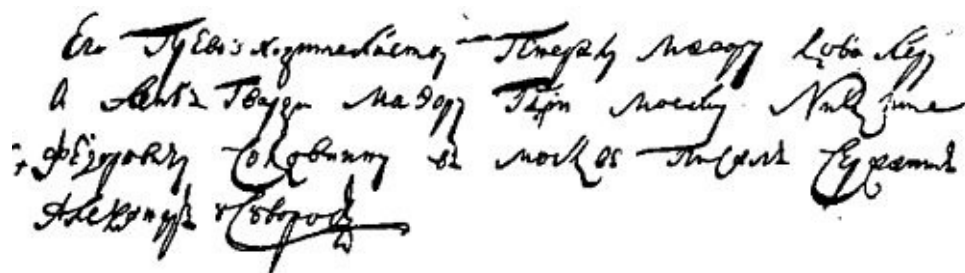 Его Превозходительству Генералу маеору
А Леибъ Гвардіи Маэору моему Никите
Федоровичу Соковнину въ москве писалъ Сержантъ
Александръ Суворовъ